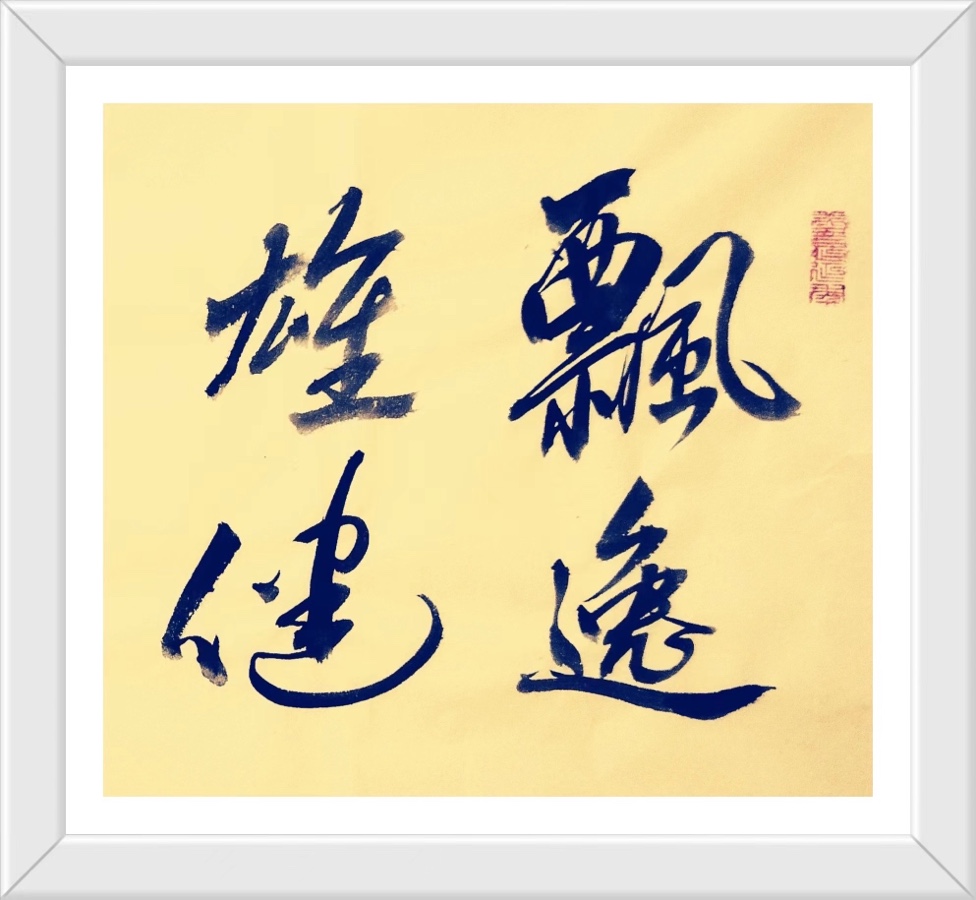 飄逸
雄健